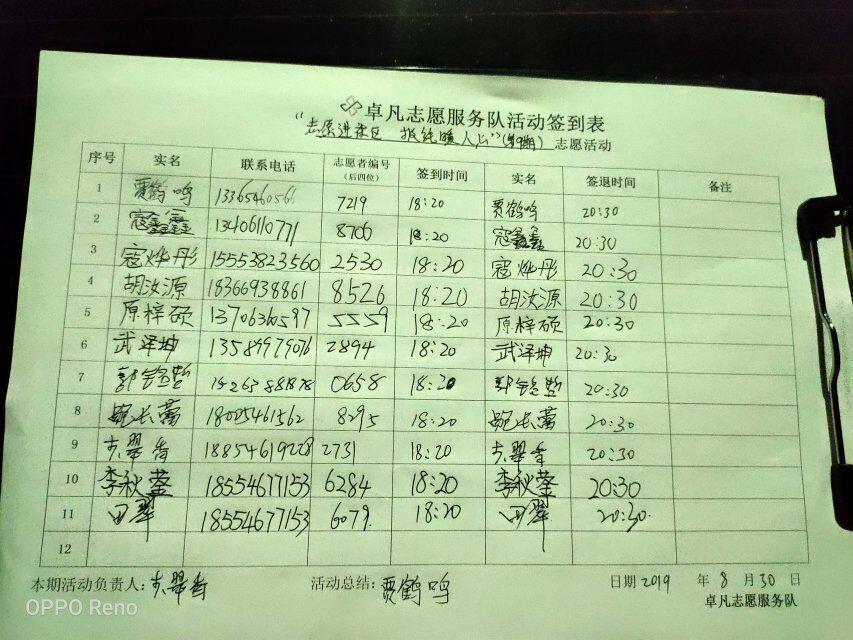 卓凡志愿服务队活动签到表
“志愿进社区 报纸暖人心” 志愿活动
序号 实名 联系电话 志愿者编号（后四位） 签到时间 实名 签退时间 备注
1 贾鹤鸣 7219 18:20 贾鹤鸣 20:30
2 寇鑫鑫 13406110771 8706 18:20 寇鑫鑫 20:30
3 寇烨彤 15553823560 2530 18:20 寇烨彤 20:30
4 胡汝源 18366938861 8526 18:20 胡汝源 20:30
5 原梓硕 13706360597 5559 18:20 原梓硕 20:30
6 武泽坤 13589979076 2894 18:20 武泽坤 20:30
7 0658 18:20 20:30
8 18005461562 8295 18:20 20:30
9 翠香 18854619228 2731 18:20 翠香 20:30
10 李秋蓥 18554677153 6284 18:20 李秋蓥 20:30
11 田翠 18554677153 6079 18:20 田翠 20:30
12
本期活动负责人: 翠香 活动总结: 贾鹤鸣 日期 2019 年 8 月 30 日
卓凡志愿服务队
OPPO Reno